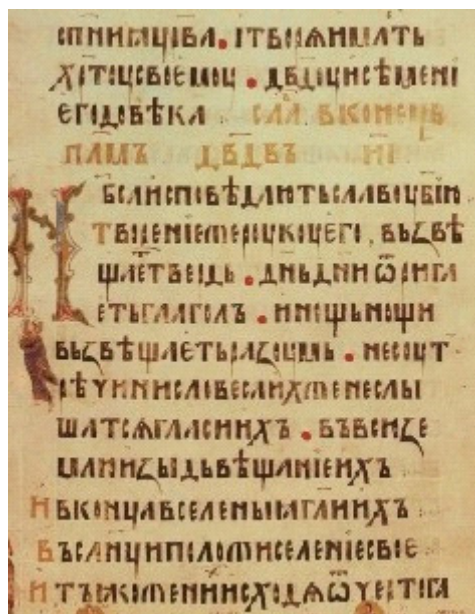 сп҃ниꙗ цр҃ва . і творѧи мл҃ть
хс҃тоу своемоу . дв҃доу и сѣмені
его до вѣка сла в конець
псалмъ дв҃двъ
Нб҃са исповѣдають славоу бж҃ию
творение же роукоу его . възвѣ
щаеть твердь . дн҃ь дн҃и ѿрига
еть глаголъ . и нощь нощи
възвѣщаеть разоумъ . не соут
рѣчи ни словеса ихже не слы
шатсѧ гласи ихъ . въ всю зе
млю изыдь вѣщание ихъ
и в конца вселеныꙗ гл҃и ихъ
въ слн҃ци положи селение свое
и тъ ꙗко женихъ исходѧ ѿ чертога